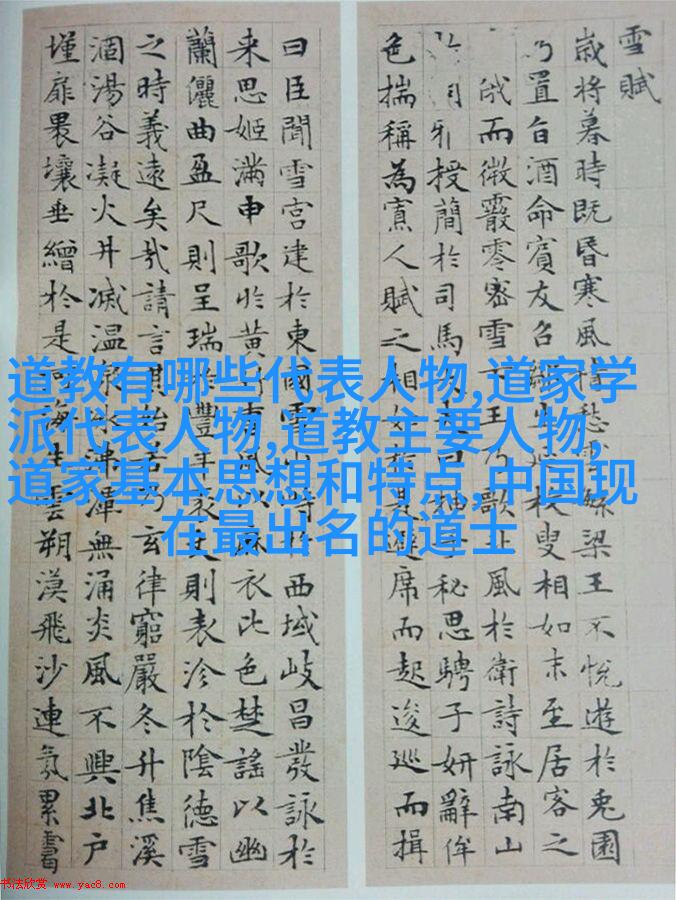 道教有哪些代表人物,道家学
派代表人物,道教主要人物,
道家基本思想和特点,中国现
在最出名的道士
雪賦
歲將暮時既昏寒風愁梁王不悅遊於兔園
乃置旨酒命賓友召生枚叟相如末至居客之
俄而微霰零密雪王乃歌北風於衛詩詠南山
授簡於司馬曰抽秘思騁子妍辭侔
色揣稱為寡人賦之相如於是避席而起逡巡而揖
曰臣聞雪宮建於東國雪山峙於西域岐昌發詠於
来思姬滿申歌於黃竹風以麻衣比色楚謠以幽
蘭儷曲盈尺則呈瑞於豐年袤丈則表沴於陰德雪
之時義遠矣哉請言其始若乃玄律窮嚴冬升焦溪
涸湯谷凝火井滅溫泉冰沸潭無涌炎風不興北户
墐扉壤垂繒於是河海生雲朔漠飛沙連氛累靄
书法欣赏 www.yac8.com